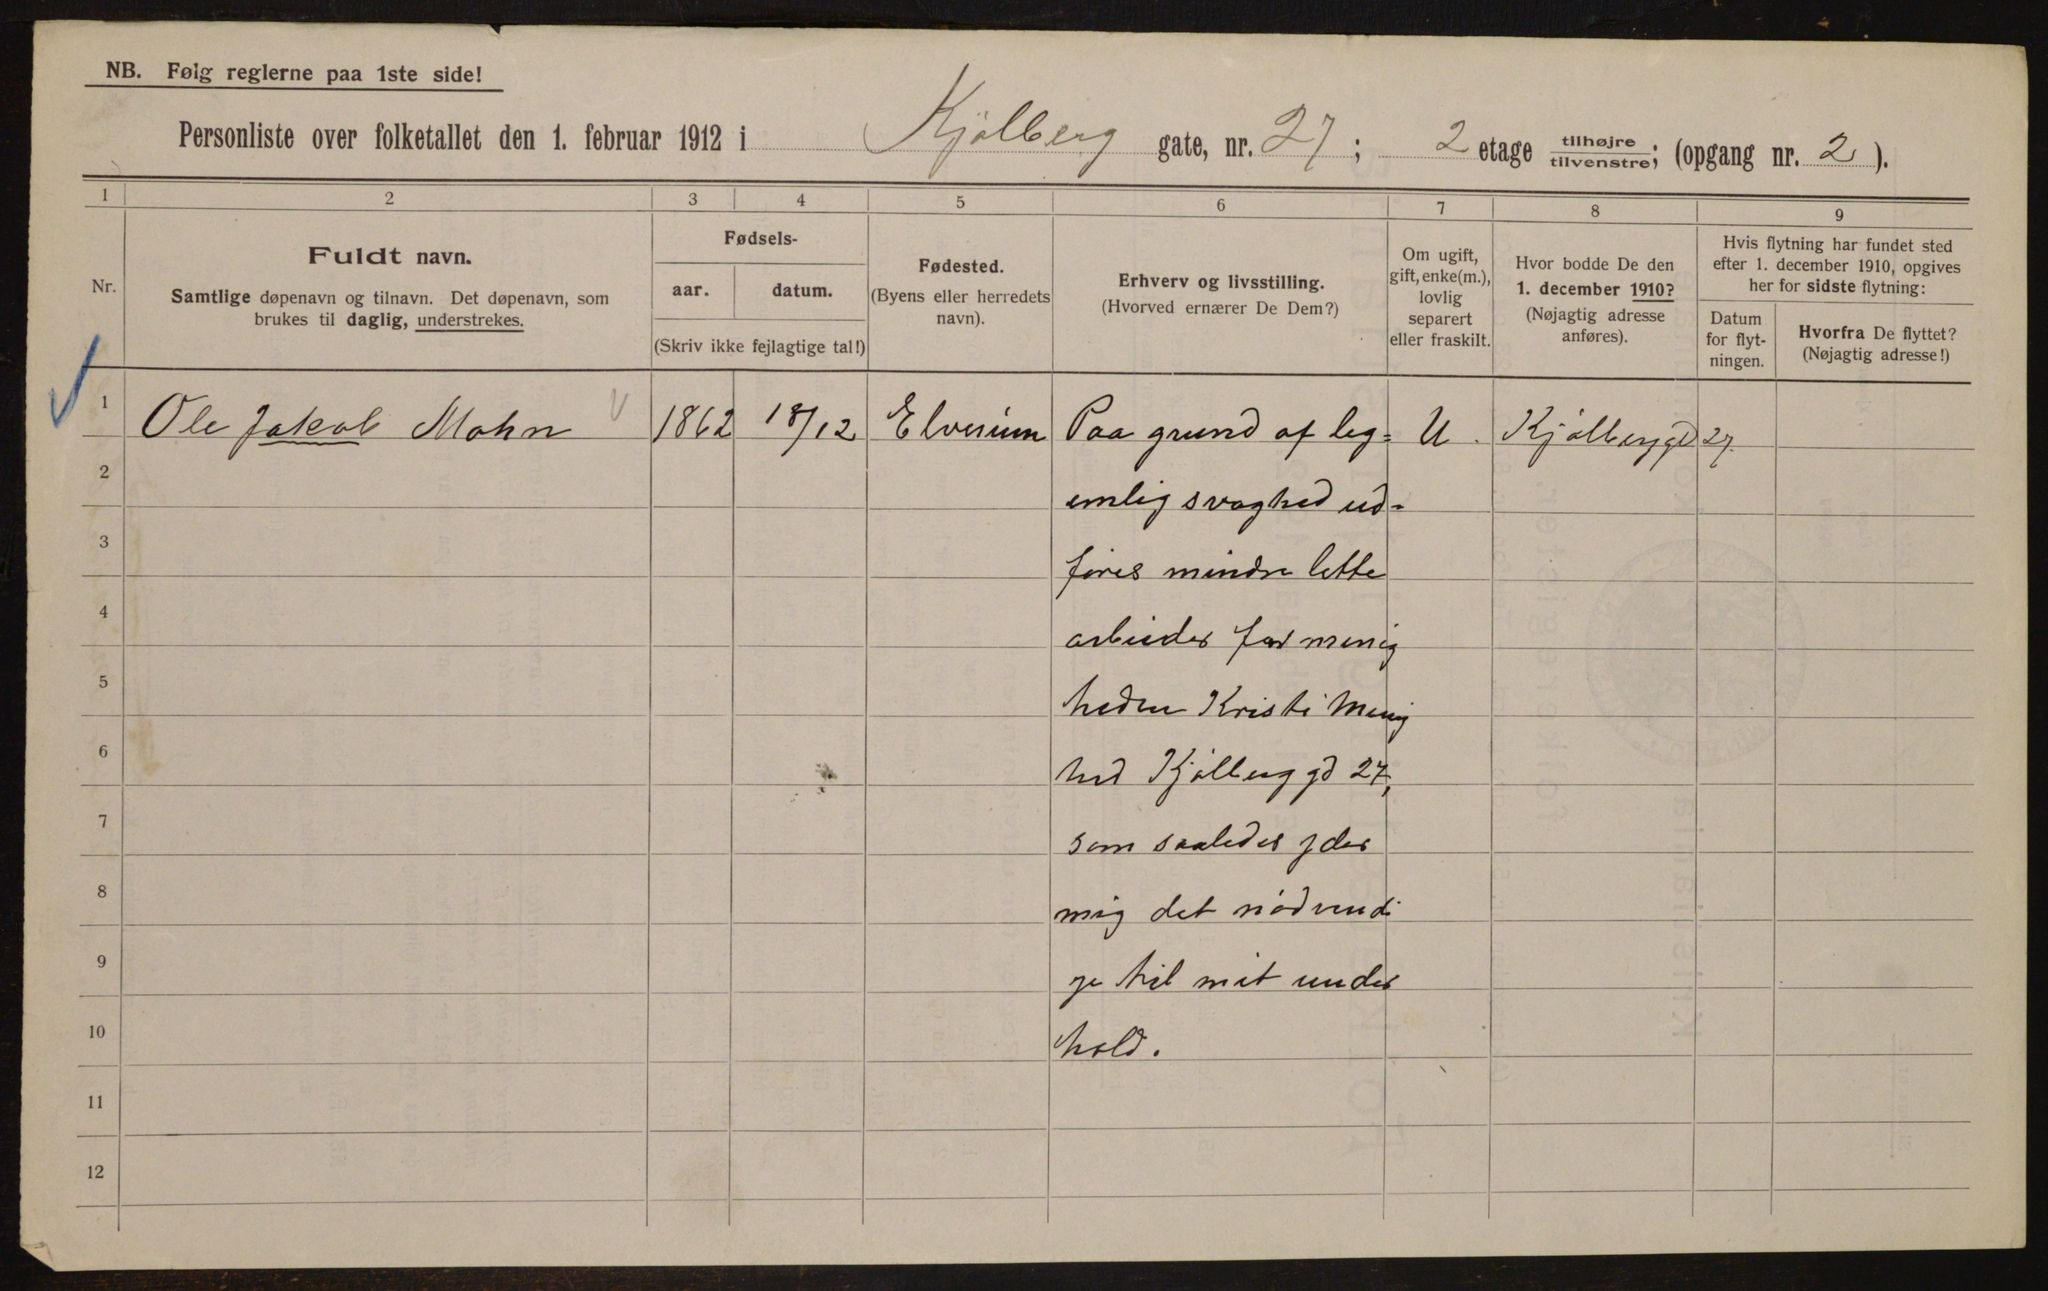 NB. Følg reglerne paa 1ste side!
Personliste over folketallet den 1. februar 1912 i Kjølberg gate, nr. 27; 2 etage tilhøjre/tilvenstre; (opgang nr. 2).
1 2 3 4 5 6 7 8 9
Nr.
Fuldt navn.
Samtlige døpenavn og tilnavn. Det døpenavn, som
brukes til daglig, understrekes.
Fødsels-
aar. datum.
(Skriv ikke fejlagtige tal!)
Fødested.
(Byens eller herredets
navn).
Erhverv og livsstilling.
(Hvorved ernærer De Dem?)
Om ugift,
gift, enke(m.),
lovlig
separert
eller fraskilt.
Hvor bodde De den
1. december 1910?
(Nøjagtig adresse
anføres).
Hvis flytning har fundet sted
efter 1. december 1910, opgives
her for sidste flytning:
Datum
for flyt-
ningen.
Hvorfra De flyttet?
(Nøjagtig adresse!)
1 Ole Jakob Mohn 1862 18/12 Elverum Paa grund af leg= U. Kjølberggd 27.
2 emlig svaghed ud=
3 føres mindre lette
4 arbeider for menig
5 heden Kristi Menig
6 hed Kjølberggd 27,
7 som saaledes yder
8 mig det nødvendi
9 ge til mit under
10 hold.
11
12